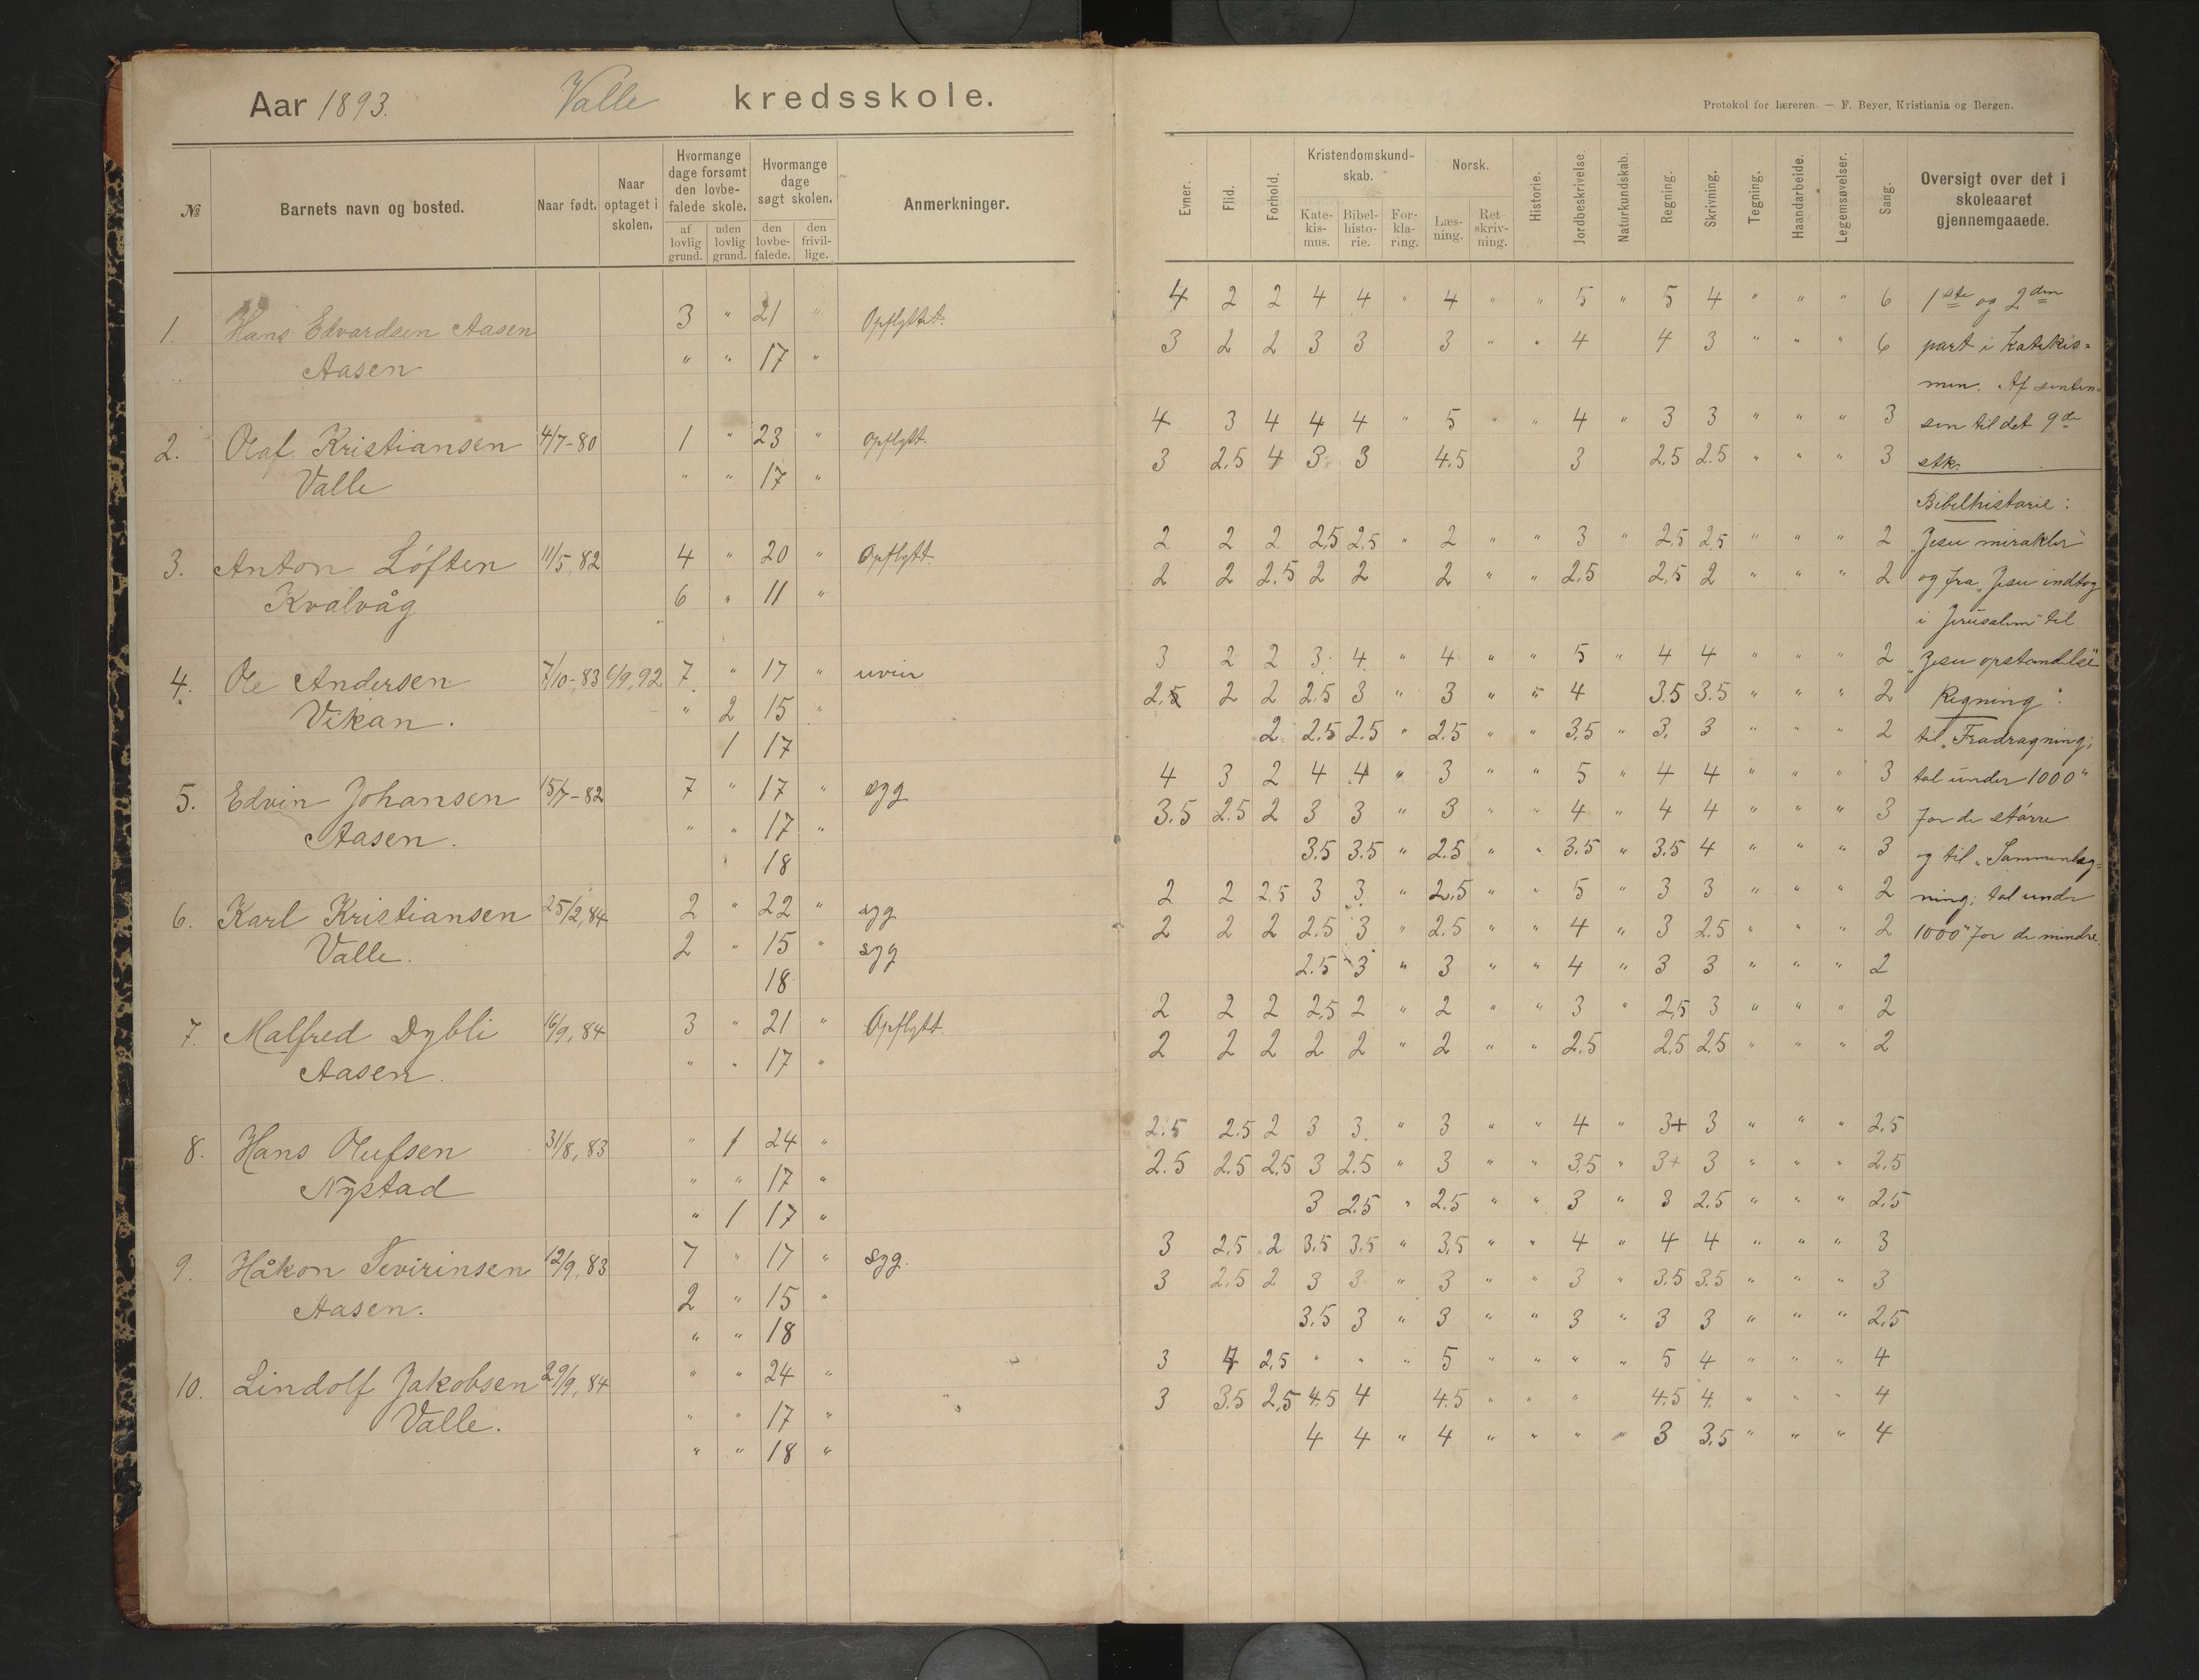 Aar 1893. Valle kredsskole.
№ Barnets navn og bosted. Naar født. Naar optaget i skolen. Hvormange dage forsømt den lovbefalede skole. af lovlig grund. uden lovlig grund. Hvormange dage søgt skolen. den lovbefalede. den frivillige. Anmerkninger.
1. Hans Edvardsen Aasen 3 " 21 " Opflyttet.
Aasen " " 17 "
2. Olaf Kristiansen 4/7-80 1 " 23 " opflytt.
Valle " " 17 "
3. Anton Løften 11/5,82 4 " 20 " Opflytt.
Kvalvåg 6 " 11 "
4. Ole Andersen 7/10-,83 6/9,92 7 " 17 " uveir
Vikan. " 2 15 "
1 17
5. Edvin Johansen 15/7-82 7 " 17 " syg
Aasen. " " 17 "
18
6. Karl Kristiansen 25/2,84 2 " 22 " syg
Valle. 2 " 15 " syg
18
7. Malfred Dybli 16/9,84 3 " 21 " Opflytt.
Aasen. " " 17 "
8. Hans Olufsen 31/8,83 " 1 24 "
Nystad " " 17 "
" 1 17 "
9. Håkon Sevirinsen 12/9,83 7 " 17 " syg.
Aasen. 2 " 15 "
" " 18
10. Lindolf Jakobsen 29/9,84 " " 24 "
Valle. " " 17 "
" " 18 "
Protokol for læreren. — F. Beyer, Kristiania og Bergen.
Evner. Flid. Forhold. Kristendomskundskab. Katekismus. Bibelhistorie. Forklaring. Norsk. Læsning. Retskrivning. Historie. Jordbeskrivelse. Naturkundskab. Regning. Skrivning. Tegning. Haandarbeide. Legemsøvelser. Sang. Oversigt over det i skoleaaret gjennemgaaede.
4 2 2 4 4 " 4 " " 5 " 5 4 " " " 6 1ste og 2den
3 2 2 3 3 3 " " 4 4 3 " " " 6 part i Katekis=
men. Af senten=
4 3 4 4 4 " 5 " " 4 " 3 3 " " " 3 sen til det 9de
3 2.5 4 3 3 4.5 3 2.5 2.5 " " " 3 stk.
Bibelhistorie:
2 2 2 2,5 2.5 " 2 " " 3 " 2,5 2,5 " " " 2 "Jesu mirakler"
2 2 2.5 2 2 2 " " 2.5 2,5 2 " " " 2 og fra "Jesu indtog
i Jerusalem" til
3 2 2 3 4 " 4 " " 5 " 4 4 " " " 2 "Jesu opstandelse"
2.5 2 2 2.5 3 " 3 " " 4 3.5 3.5 " " " 2 Regning:
2 2.5 2.5 " 2.5 " " 3.5 " 3. 3 " " " 2 til "Fradragning;
4 3 2 4 4 " 3 " " 5 " 4 4 " " " 3 tal under 1000"
3.5 2.5 2 3 3 " 3 " " 4 " 4 4 " " " 3 for de større
3.5 3.5 " 2.5 " " 3.5 " 3.5 4 " " " 3 og til "Sammenlæg=
2 2 2.5 3 3 " 2.5 " " 5 " 3 3 " " " 2 ning; tal under
2 2 2 2.5 3 " 2.5 " " 4 " 3 2.5 " " " 2 1000" for de mindre.
2.5 3 " 3 " " 4 " 3 3 " " " 2
2 2 2 2,5 2 " 2 " " 3 " 2,5 3 " " " 2
2 2 2 2 2 " 2 " " 2.5 2,5 2.5 " " " 2
2.5 2.5 2 3 3. " 3 " " 4 " 3+ 3 " " " 2.5
2.5 2.5 2,5 3 2.5 " 3 " " 3.5 " 3+ 3 " " " 2.5
3 2.5 " 2.5 " " 3 " 3 2.5 " " " 2.5
3 2,5 2 3.5 3.5 " 3,5 " " 4 " 4 4 " " " 3
3 2.5 2 3 3 " 3 " " 3 " 3.5 3.5 " " " 3
3.5 3 " 3 " " 3 " 3 3 " " " 2,5
3 4 2,5 " " " 5 " " " " 5 4 " " " 4
3 3.5 2,5 4.5 4 4.5 " " " 4.5 4. " " " 4
4 4 " 4 " " " " 3 3,5 " " " 4